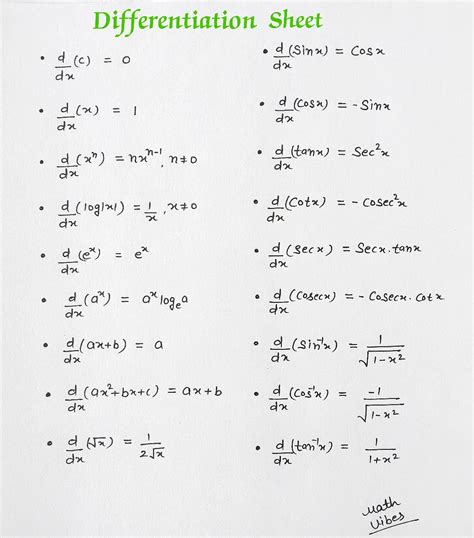 Differentiation Sheet
• d/dx (c) = 0
• d/dx (x) = 1
• d/dx (xⁿ) = nxⁿ⁻¹, n≠0
• d/dx (log|x|) = 1/x, x≠0
• d/dx (eˣ) = eˣ
• d/dx (aˣ) = aˣ logₑa
• d/dx (ax+b) = a
• d/dx (ax²+bx+c) = ax+b
• d/dx (√x) = 1/2√x
• d/dx (Sinx) = Cosx
• d/dx (Cosx) = -Sinx
• d/dx (tanx) = Sec²x
• d/dx (Cotx) = -Cosec²x
• d/dx (Secx) = Secx.tanx
• d/dx (Cosecx) = -Cosecx.Cotx
• d/dx (Sin⁻¹x) = 1/√1-x²
• d/dx (Cos⁻¹x) = -1/√1-x²
• d/dx (tan⁻¹x) = 1/1+x²
Math
Vibes